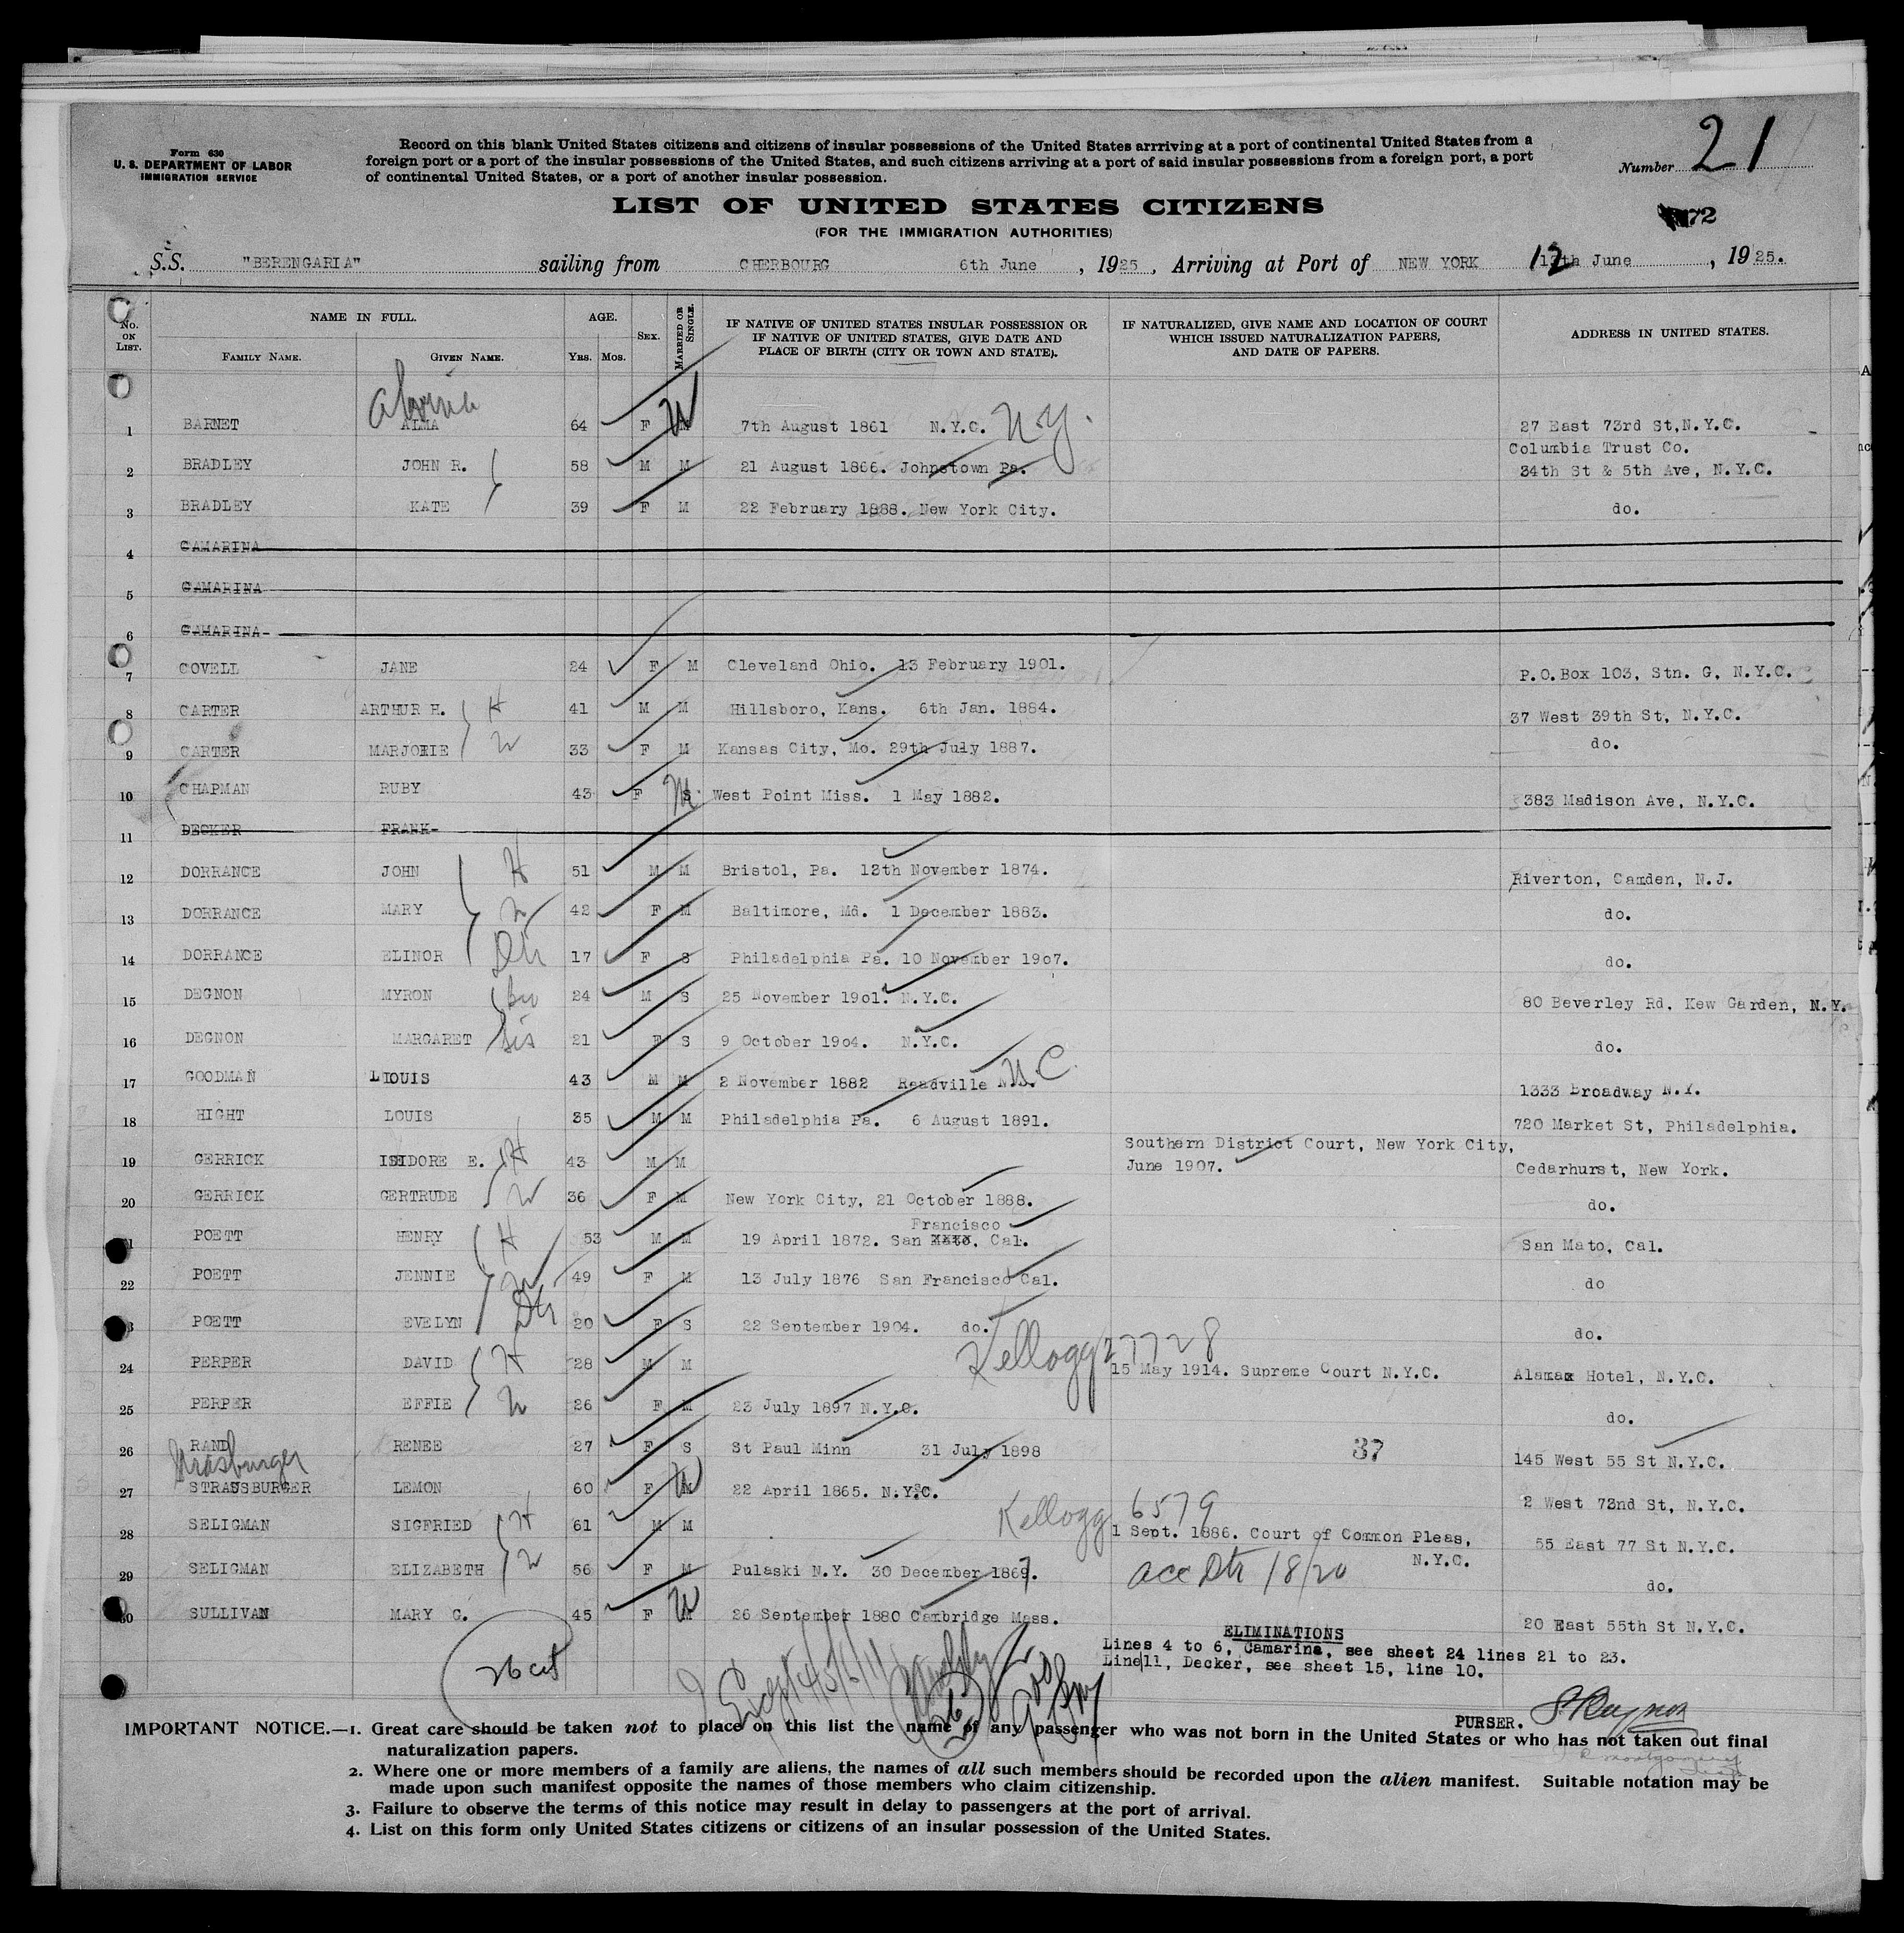 Form 630
U. S. DEPARTMENT OF LABOR
IMMIGRATION SERVICE
Record on this blank United States citizens and citizens of insular possessions of the United States arrriving at a port of continental United States from a
foreign port or a port of the insular possessions of the United States, and such citizens arriving at a port of said insular possessions from a foreign port, a port
of continental United States, or a port of another insular possession.
Number 21
LIST OF UNITED STATES CITIZENS
(FOR THE IMMIGRATION AUTHORITIES)
72
S.S. "BERENGARIA" sailing from CHERBOURG 6th June, 1925, Arriving at Port of NEW YORK 12th June, 1925.
No. ON LIST. NAME IN FULL. FAMILY NAME. GIVEN NAME. AGE. YRS. MOS. SEX. MARRIED OR SINGLE. IF NATIVE OF UNITED STATES INSULAR POSSESSION OR IF NATIVE OF UNITED STATES, GIVE DATE AND PLACE OF BIRTH (CITY OR TOWN AND STATE). IF NATURALIZED, GIVE NAME AND LOCATION OF COURT WHICH ISSUED NATURALIZATION PAPERS, AND DATE OF PAPERS. ADDRESS IN UNITED STATES.
1 BARNET ALMA 64 F W 7th August 1861 N.Y.C. N.Y. 27 East 73rd St, N.Y.C.
2 BRADLEY JOHN R. 58 M M 21 August 1866. Johnstown Pa. Columbia Trust Co. 34th St & 5th Ave, N.Y.C.
3 BRADLEY KATE 39 F M 22 February 1888. New York City. do.
4 CAMARINA
5 CAMARINA
6 CAMARINA
7 COVELL JANE 24 F M Cleveland Ohio. 13 February 1901. P.O.Box 103, Stn. G, N.Y.C.
8 CARTER ARTHUR H. H 41 M M Hillsboro, Kans. 6th Jan. 1884. 37 West 39th St, N.Y.C.
9 CARTER MARJORIE W 33 F M Kansas City, Mo. 29th July 1887. do.
10 CHAPMAN RUBY 43 F M West Point Miss. 1 May 1882. 383 Madison Ave, N.Y.C.
11 DECKER FRANK
12 DORRANCE JOHN H 51 M M Bristol, Pa. 12th November 1874. Riverton, Camden, N.J.
13 DORRANCE MARY W 42 F M Baltimore, Md. 1 December 1883. do.
14 DORRANCE ELINOR Dtr 17 F S Philadelphia Pa. 10 November 1907. do.
15 DEGNON MYRON bro 24 M S 25 November 1901. N.Y.C. 80 Beverley Rd, Kew Garden, N.Y.
16 DEGNON MARGARET sis 21 F S 9 October 1904. N.Y.C. do.
17 GOODMAN LOUIS 43 M M 2 November 1882 Readville N.C. 1333 Broadway N.Y.
18 HIGHT LOUIS 35 M M Philadelphia Pa. 6 August 1891. 720 Market St, Philadelphia.
19 GERRICK ISIDORE E. H 43 M M Southern District Court, New York City, June 1907. Cedarhurst, New York.
20 GERRICK GERTRUDE W 36 F M New York City, 21 October 1888. do.
21 POETT HENRY H 53 M M 19 April 1872. San Francisco, Cal. San Mato, Cal.
22 POETT JENNIE W 49 F M 13 July 1876 San Francisco Cal. do
23 POETT EVELYN Dtr 20 F S 22 September 1904. do. do.
24 PERPER DAVID H 28 M M Kellogg 27728 15 May 1914. Supreme Court N.Y.C. Alamax Hotel, N.Y.C.
25 PERPER EFFIE W 26 F M 23 July 1897 N.Y.C. do.
26 RAND RENEE 27 F S St Paul Minn 31 July 1898 37 145 West 55 St N.Y.C.
Strasburger
27 STRAUSBURGER LEMON 60 F W 22 April 1865. N.Y.C. 2 West 72nd St, N.Y.C.
28 SELIGMAN SIGFRIED H 61 M M Kellogg 6579 1 Sept. 1886. Court of Common Pleas, N.Y.C. 55 East 77 St N.Y.C.
29 SELIGMAN ELIZABETH W 56 F M Pulaski N.Y. 30 December 1867. acc Dtr 18/20 do.
30 SULLIVAN MARY G. 45 F W 26 September 1880 Cambridge Mass. 20 East 55th St N.Y.C.
26 cit
26
ELIMINATIONS
Lines 4 to 6, Camarina, see sheet 24 lines 21 to 23.
Line 11, Decker, see sheet 15, line 10.
PURSER.
IMPORTANT NOTICE.—1. Great care should be taken not to place on this list the name of any passenger who was not born in the United States or who has not taken out final
naturalization papers.
2. Where one or more members of a family are aliens, the names of all such members should be recorded upon the alien manifest. Suitable notation may be
made upon such manifest opposite the names of those members who claim citizenship.
3. Failure to observe the terms of this notice may result in delay to passengers at the port of arrival.
4. List on this form only United States citizens or citizens of an insular possession of the United States.